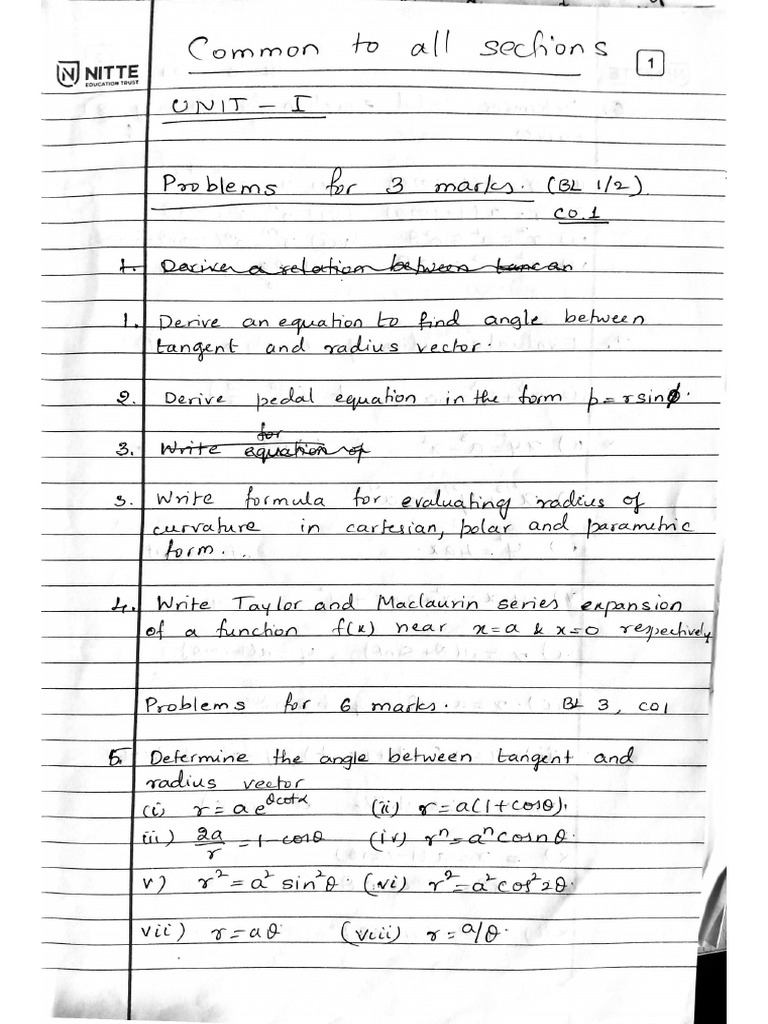 Common to all sections
1
NITTE
EDUCATION TRUST
UNIT - I
Problems for 3 marks. (BL 1/2)
CO.1
1. Derive a relation between tancan
1. Derive an equation to find angle between
tangent and radius vector.
2. Derive pedal equation in the form p = r sinϕ.
for
3. Write equation of
3. Write formula for evaluating radius of
curvature in cartesian, polar and parametric
form...
4. Write Taylor and Maclaurin series expansion
of a function f(x) near x=a & x=0 respectively
Problems for 6 marks. BL 3, CO1
5. Determine the angle between tangent and
radius vector
(i) r = a e^θcotα (ii) r = a(1+cosθ).
iii) 2a/r = 1-cosθ (iv) rⁿ = aⁿ cosnθ.
v) r² = a² sin²θ. (vi) r² = a² cos²2θ.
vii) r = aθ (viii) r = a/θ.